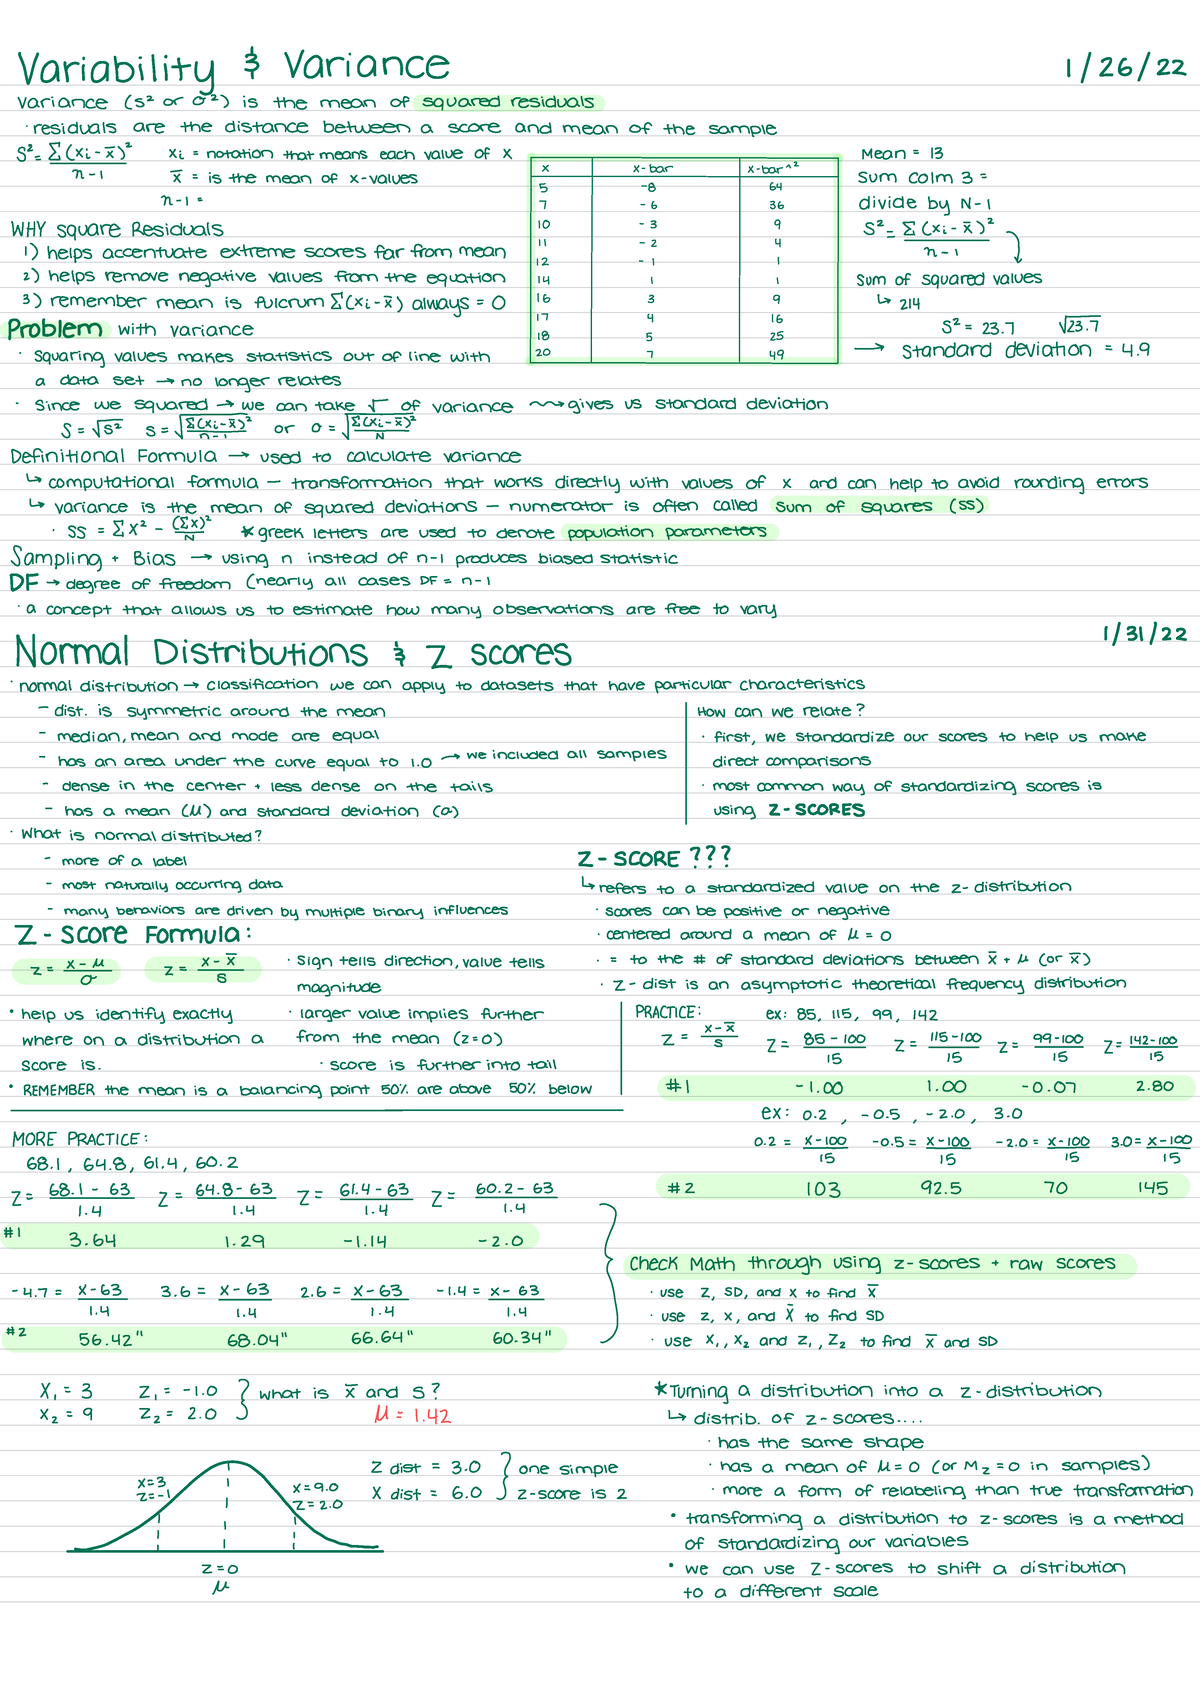 Variability & Variance
1/26/22
variance (s² or σ²) is the mean of squared residuals
· residuals are the distance between a score and mean of the sample
S² = Σ(xi - x̄)² / n-1
xi = notation that means each value of x
x̄ = is the mean of x-values
n-1 =
x x-bar x-bar^2
5 -8 64
7 -6 36
10 -3 9
11 -2 4
12 -1 1
14 1 1
16 3 9
17 4 16
18 5 25
20 7 49
Mean = 13
Sum Colm 3 =
divide by N-1
S² = Σ(xi - x̄)² / n-1
Sum of squared values
↳ 214
S² = 23.7 √23.7
→ Standard deviation = 4.9
WHY square Residuals
1) helps accentuate extreme scores far from mean
2) helps remove negative values from the equation
3) remember mean is fulcrum Σ(xi-x̄) always = 0
Problem with variance
· Squaring values makes statistics out of line with
a data set → no longer relates
· Since we squared → we can take √ of variance ⟿ gives us standard deviation
S = √S² s = √Σ(xi-x̄)² / n-1 or σ = √Σ(xi-x̄)² / N
Definitional Formula → used to calculate variance
↳ computational formula – transformation that works directly with values of x and can help to avoid rounding errors
↳ variance is the mean of squared deviations – numerator is often called sum of squares (ss)
· SS = ΣX² - (Σx)² / N * greek letters are used to denote population parameters
Sampling + Bias → using n instead of n-1 produces biased statistic
DF → degree of freedom (nearly all cases DF = n-1
· a concept that allows us to estimate how many observations are free to vary
1/31/22
Normal Distributions & Z scores
· normal distribution → classification we can apply to datasets that have particular characteristics
- dist. is symmetric around the mean
- median, mean and mode are equal
- has an area under the curve equal to 1.0 → we included all samples
- dense in the center + less dense on the tails
- has a mean (μ) and standard deviation (σ)
How can we relate?
· first, we standardize our scores to help us make
direct comparisons
· most common way of standardizing scores is
using Z-SCORES
· What is normal distributed?
- more of a label
- most naturally occurring data
- many behaviors are driven by multiple binary influences
Z-SCORE ???
↳ refers to a standardized value on the z-distribution
· scores can be positive or negative
· centered around a mean of μ = 0
· = to the # of standard deviations between x̄ + μ (or x̄)
· Z-dist is an asymptotic theoretical frequency distribution
Z-score Formula:
z = x-μ / σ z = x-x̄ / s
· Sign tells direction, value tells
magnitude
• help us identify exactly
where on a distribution a
score is.
· larger value implies further
from the mean (z=0)
· score is further into tail
• REMEMBER the mean is a balancing point 50% are above 50% below
PRACTICE: ex: 85, 115, 99, 142
Z = x-x̄ / s Z = 85-100 / 15 Z = 115-100 / 15 Z = 99-100 / 15 Z = 142-100 / 15
#1 -1.00 1.00 -0.07 2.80
ex: 0.2, -0.5, -2.0, 3.0
0.2 = x-100 / 15 -0.5 = x-100 / 15 -2.0 = x-100 / 15 3.0 = x-100 / 15
#2 103 92.5 70 145
MORE PRACTICE:
68.1, 64.8, 61.4, 60.2
Z = 68.1-63 / 1.4 Z = 64.8-63 / 1.4 Z = 61.4-63 / 1.4 Z = 60.2-63 / 1.4
#1 3.64 1.29 -1.14 -2.0
-4.7 = x-63 / 1.4 3.6 = x-63 / 1.4 2.6 = x-63 / 1.4 -1.4 = x-63 / 1.4
#2 56.42" 68.04" 66.64" 60.34"
Check Math through using z-scores + raw scores
· use z, SD, and x to find x̄
· use z, x, and x̄ to find SD
· use x₁, x₂ and z₁, z₂ to find x̄ and SD
X₁ = 3 Z₁ = -1.0
X₂ = 9 Z₂ = 2.0
what is x̄ and s?
μ = 1.42
x=3
z=-1
x=9.0
z=2.0
z=0
μ
Z dist = 3.0
X dist = 6.0
one simple
z-score is 2
* Turning a distribution into a z-distribution
↳ distrib. of z-scores....
· has the same shape
· has a mean of μ=0 (or Mz=0 in samples)
· more a form of relabeling than true transformation
• transforming a distribution to z-scores is a method
of standardizing our variables
• we can use z-scores to shift a distribution
to a different scale